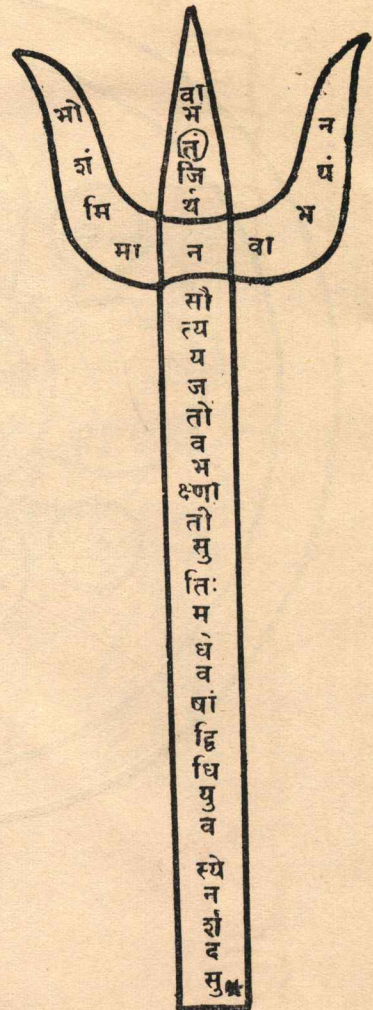 भो
शं
मि
मा
वा
भ
तं
जि
र्थ
न
न
यं
भ
वा
सौ
त्य
य
ज
तो
व
भ
क्ष्णा
ती
सु
तिः
म
धे
व
षां
द्वि
धि
यु
व
स्ये
न
र्श
द
सु